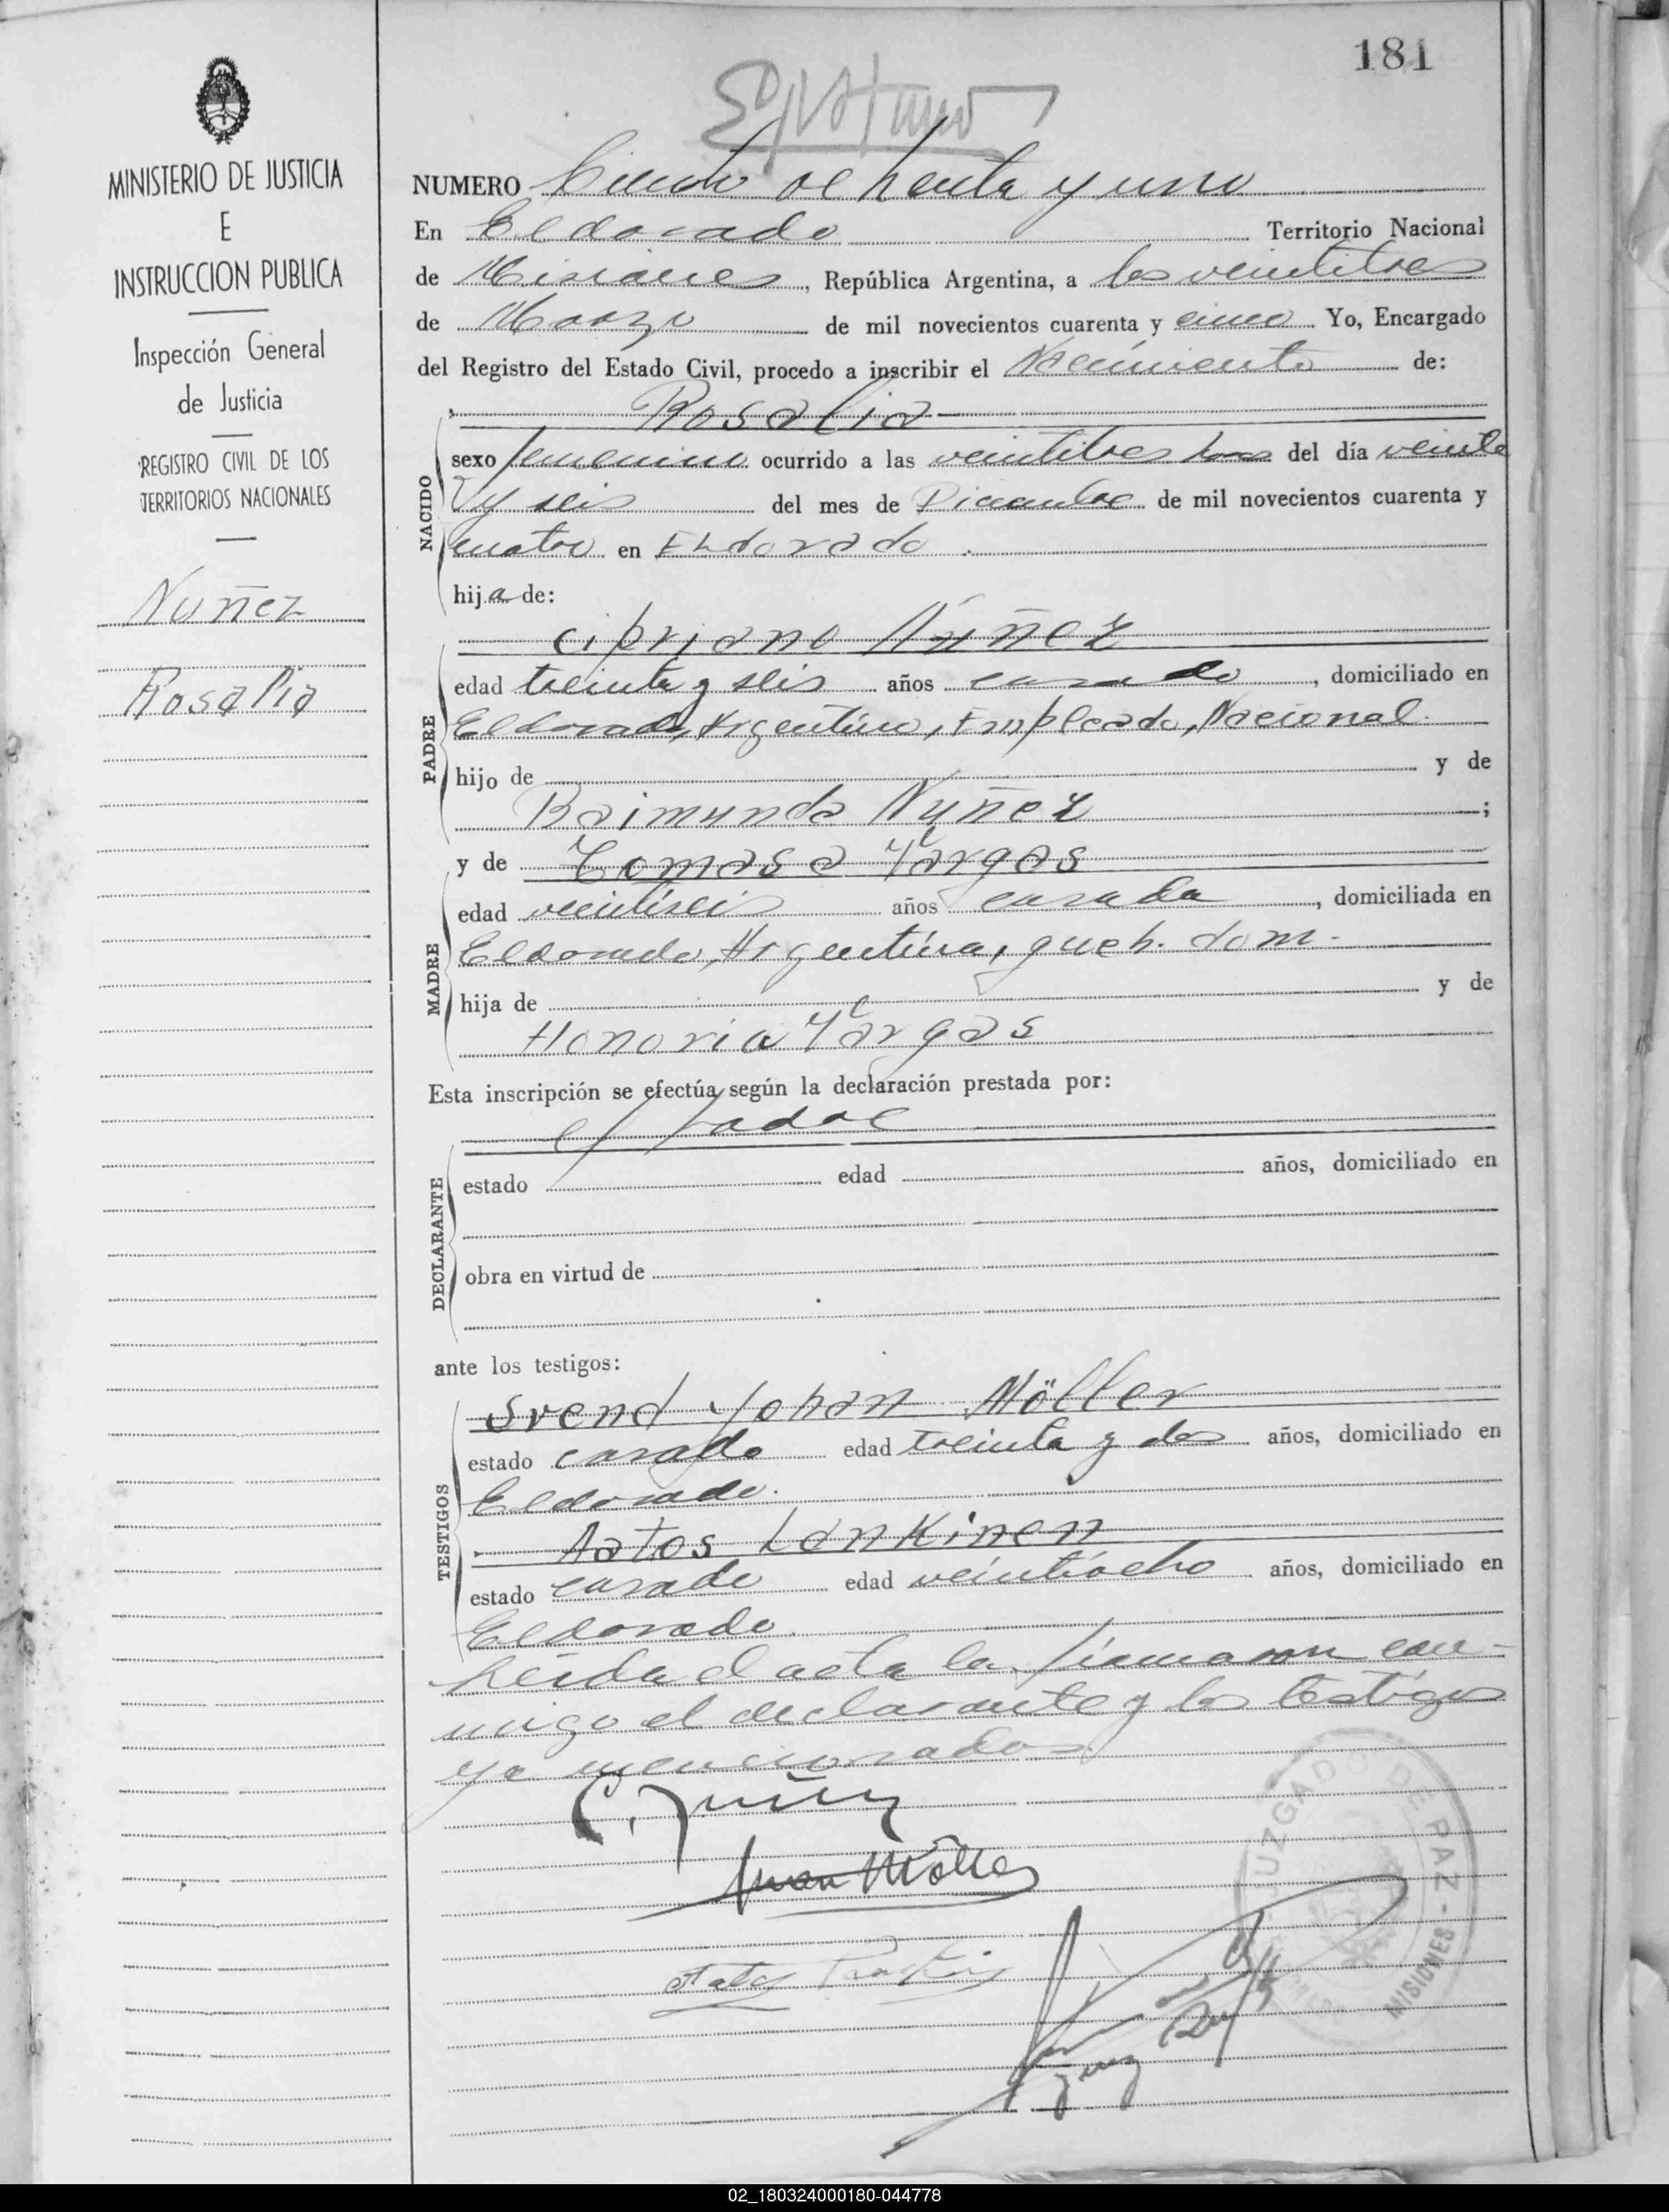 181
MINISTERIO DE JUSTICIA
E
INSTRUCCION PUBLICA
Inspección General
de Justicia
REGISTRO CIVIL DE LOS
TERRITORIOS NACIONALES
Nuñez
Rosalia
NUMERO Ciento ochenta y uno
En Eldorado Territorio Nacional
de Misiones, República Argentina, a los veintitres
de Marzo de mil novecientos cuarenta y cinco Yo, Encargado
del Registro del Estado Civil, procedo a inscribir el Nacimiento de:
Rosalia
NACIDO
sexo femenino ocurrido a las veintitres horas del día veinte
y seis del mes de Diciembre de mil novecientos cuarenta y
cuatro en Eldorado.
hija de:
Cipriano Núñez
PADRE
edad treinta y seis años casado, domiciliado en
Eldorado, Argentino, Empleado, Nacional.
hijo de y de
Raimunda Nuñez;
y de Tomasa Vargas
MADRE
edad veintiseis años casada, domiciliada en
Eldorado, Argentina, queh. dom.
hija de y de
Honoria Vargas
Esta inscripción se efectúa según la declaración prestada por:
el padre
DECLARANTE
estado edad años, domiciliado en
obra en virtud de
ante los testigos:
TESTIGOS
Svend Johan Möller
estado casado edad treinta y dos años, domiciliado en
Eldorado.
Aatos Lankinen
estado casado edad veintiocho años, domiciliado en
Eldorado.
Leída el acta la firmaron con-
migo el declarante y los testigos
ya mencionados
C. Nuñez
Möller
JUZGADO DE PAZ - MISIONES
Juez
02_180324000180-044778